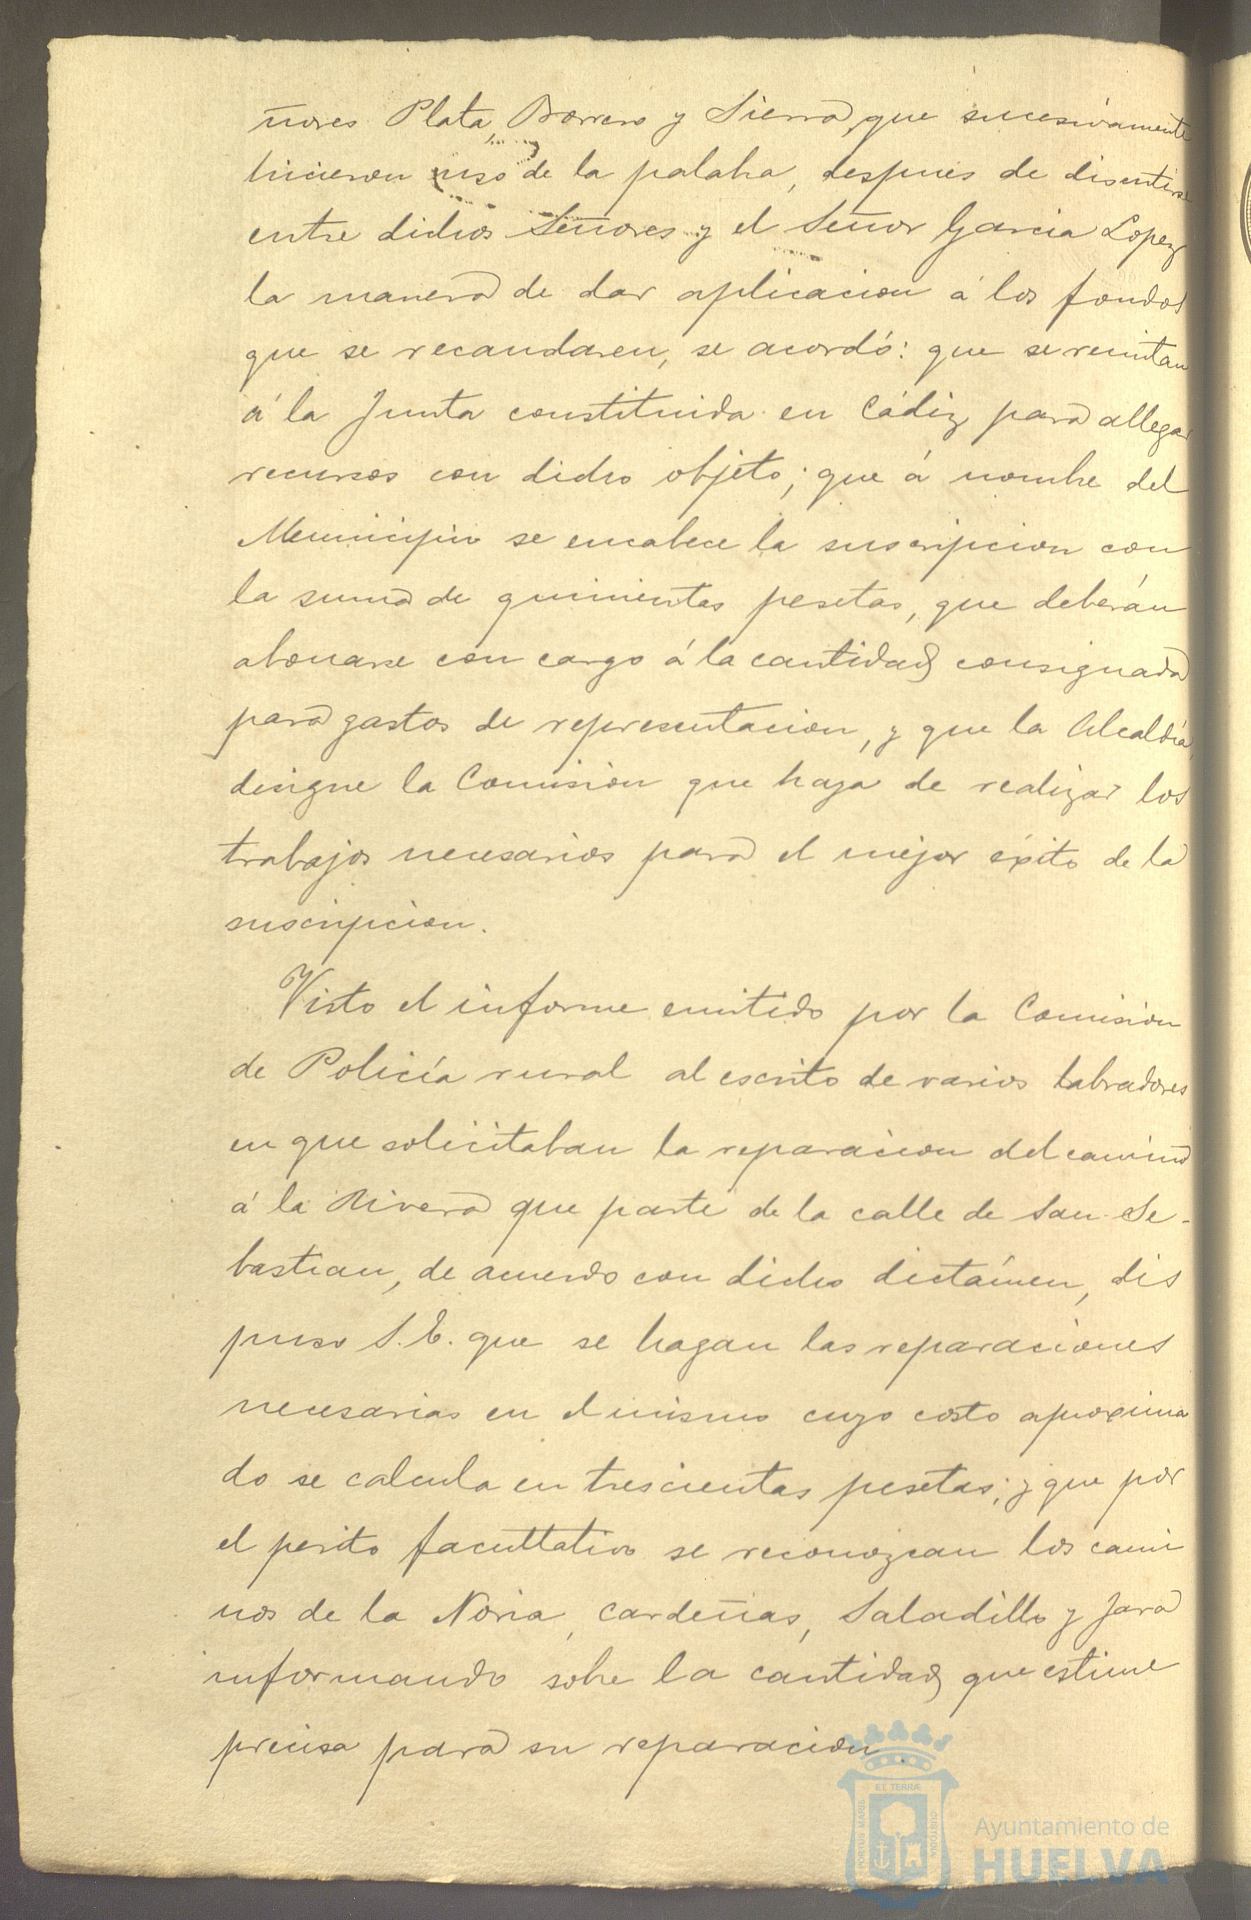 ñores Plata, Borrero y Sierra, que sucesivamente
hicieron uso de la palabra, despues de discutirse
entre dichos Señores y el Señor Garcia Lopez
la manera de dar aplicacion á los fondos
que se recaudaren, se acordó: que se remitan
á la Junta constituida en Cádiz para allegar
recursos con dicho objeto; que á nombre del
Municipio se encabece la suscripcion con
la suma de quinientas pesetas, que deberán
abonarse con cargo á la cantidad consignada
para gastos de representacion, y que la Alcaldía
designe la Comision que haya de realizar los
trabajos necesarios para el mejor éxito de la
suscripcion.
Visto el informe emitido por la Comision
de Policía rural al escrito de varios labradores
en que solicitaban la reparacion del camino
á la Rivera que parte de la calle de San Se-
bastian, de acuerdo con dicho dictámen, dis
puso S.E. que se hagan las reparaciones
necesarias en el mismo cuyo costo aproxima
do se calcula en trescientas pesetas; y que por
el perito facultativo se reconozcan los cami
nos de la Noria, Cardeñas, Saladillo y Jara
informando sobre la cantidad que estime
precisa para su reparacion.
PORTUS MARIS ET TERRÆ CUSTODIA
Ayuntamiento de
HUELVA